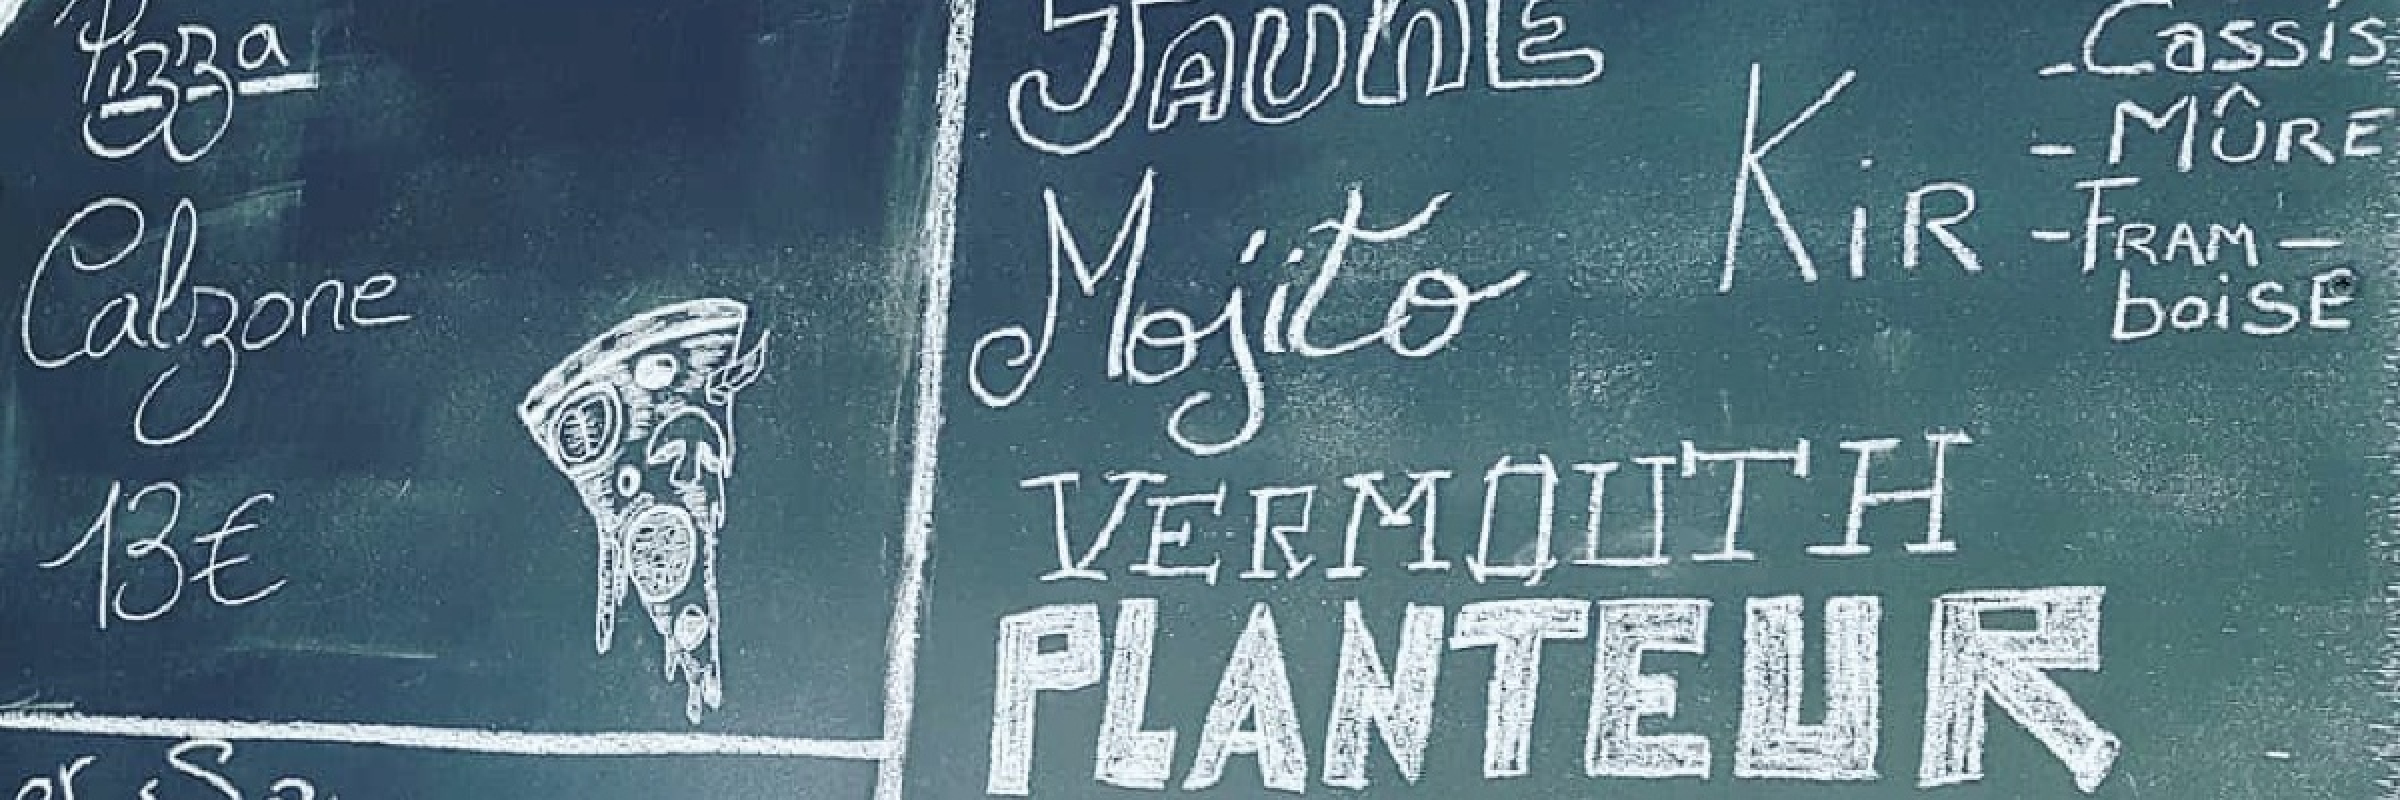 Pizza
Calzone
13€
JAUNE
Mojito
KiR
- Cassis
- MÛRE
- FRAM-
boisE
VERMOUTH
PLANTEUR